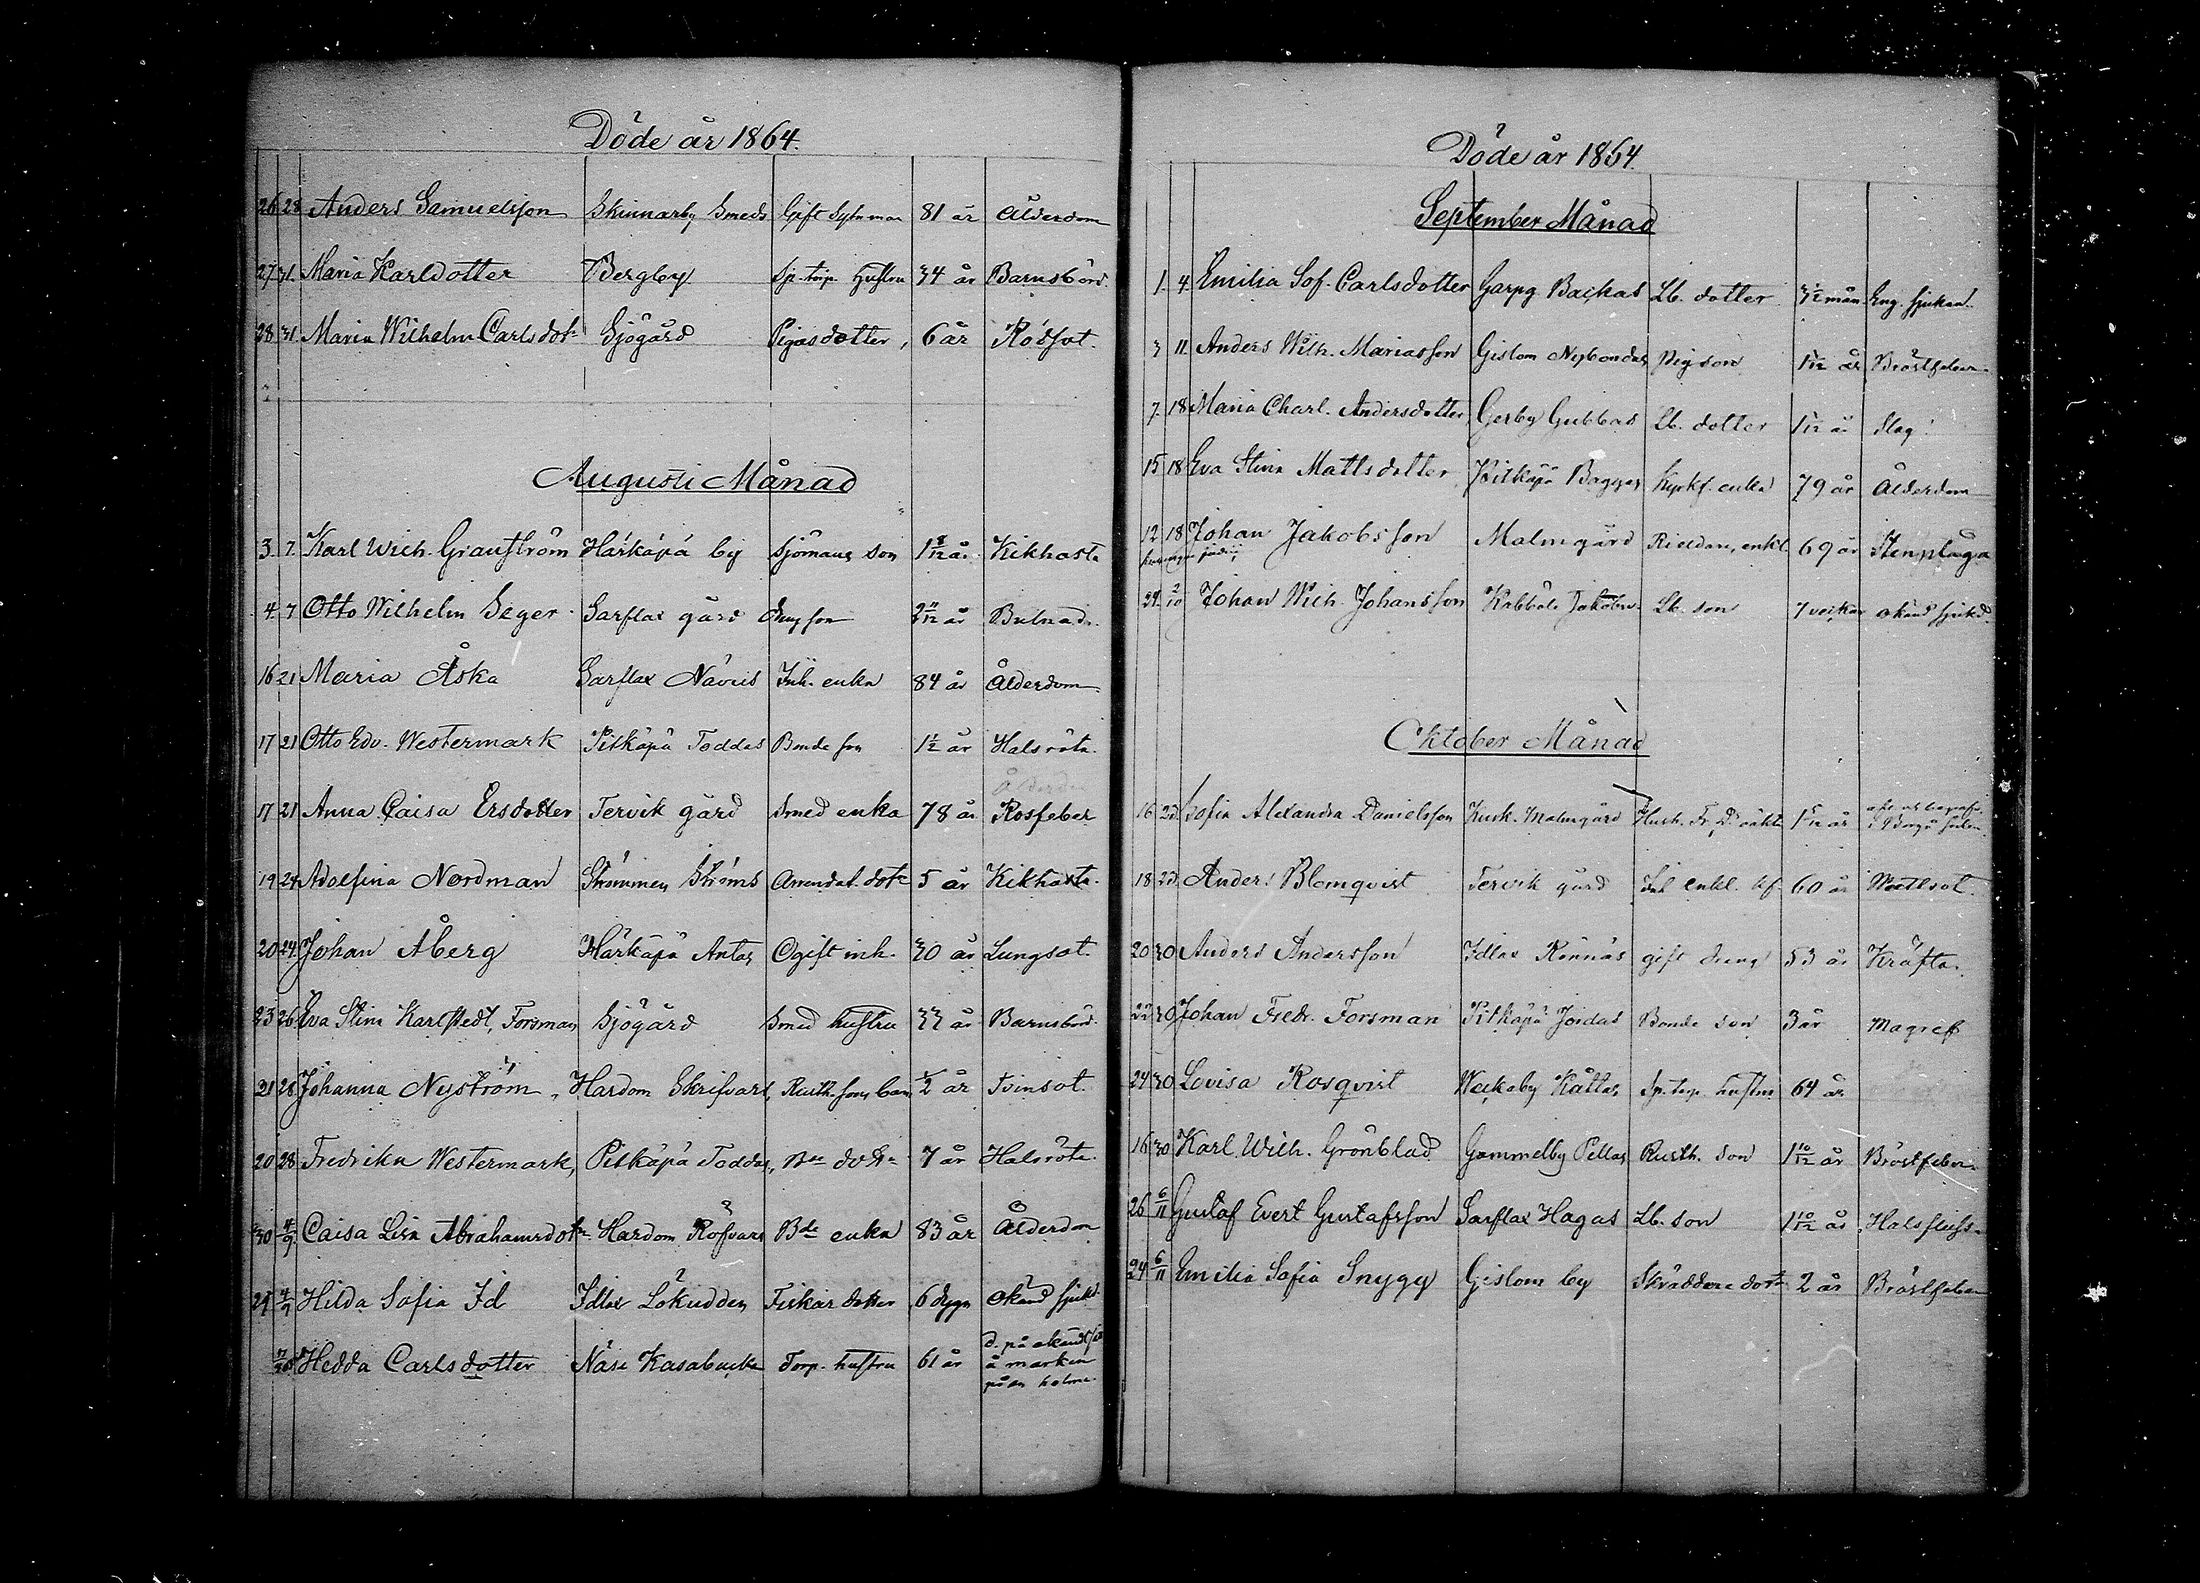 Döde år 1864.
26 28 Anders Samuelsson Skinnarby Smeds Gift Sytnman 81 år Ålderdom
27 31. Maria Karlsdotter Bergby Sp. torp. hustru 34 år Barnsbörd.
28 31. Maria Wilhelm. Carlsdotr Sjögård Pigas dotter, 6 år Rödsot.
Augusti Månad
3. 7. Karl Wilh. Granström Härkäpä by Sjömans son 1 8/12 år Kikhosta
4. 7 Otto Wilhelm Seger Sarflax gård Dreng son 2 11/12 år Bulnad.
16 21 Maria Åska Sarflax Näveis Inh. enka 84 år Ålderdom
17 21 Otto Edv. Westermark Pitkäpä Toddas Bonde son 1 1/2 år Halsröta
17 21 Anna Caisa Ersdotter Tervik gård Smed enka 78 år Rosfeber
19 24 Adolfina Nordman Strömmen Ströms Arrendat. dotr 5 år Kikhosta.
20 24. Johan Åberg Härkäpä Antas Ogift inh. 30 år Lungsot.
23 26 Eva Stina Karlstedt, Forsman Sjögård Smed hustru 33 år Barnsbörd.
21 28 Johanna Nyström, Hardom Skrifvars, Rusth. sons barn 1/2 år Tvinsot.
20 28 Fredrika Westermark, Pitkäpä Toddas, Bde dotr 7 år Halsröta.
30 4/9 Caisa Lisa Abrahamsdotr Hardom Röfvars Bde enka 83 år Ålderdom
29 4/9 Hilda Sofia Id Idlax Lökudden Fiskar dotter 6 dygn Okänd sjukd.
Hedda Carlsdotter Näse Kasabacka Torp. hustru 61 år d. på okändt sätt
å marken
på en holme.
Döde år 1864.
September Månad
1. 4. Emilia Sof. Carlsdotter Garpg. Backas Lb. dotter 3 1/2 mån. Eng. sjukan.
3 11. Anders Wilh. Mariasson Gislom Nybondas Pig son 1 /12 år Bröstfeber.
7. 18 Maria Charl. Andersdotter Gerby Gubbas Lb. dotter 1 /12 år Slag.
15 18 Eva Stina Mattsdotter Pitkäpä Bagges Kyrkf. enka 79 år Ålderdom
12 18 Johan Jakobsson Malmgård enkl. 69 år Stenplåga
29. 2/10 Johan Wilh. Johansson Kabböle Jakobs. Lb. son 7 veckor okänd sjukd.
Oktober Månad
16 23. Sofia Alexandra Danielsson Kusk. Malmgård 1 5/12 år
18 23. Anders Blomqvist Tervik gård Inh enkl. 60 år Wattsot.
20 30 Anders Andersson Idlax Rönnäs gift dreng 53 år Kräfta.
22 30 Johan Fredr. Forsman Pitkäpä Jordas Bonde son 3 år Magref
24 30 Lovisa Rosqvist Weckoby Kättas Sp. torp. hustru 64 år.
16 30 Karl Wilh. Grönblad Gammelby Pellas Rusth. son 1 10/12 år Bröstfeber.
26 6/11 Gustaf Evert Gustafsson Sarflax Hagas Lb. son 1 10/12 år Halsfluss.
24 6/11 Emilia Sofia Snygg Gislom by Skräddare dotr 2 år Bröstfeber